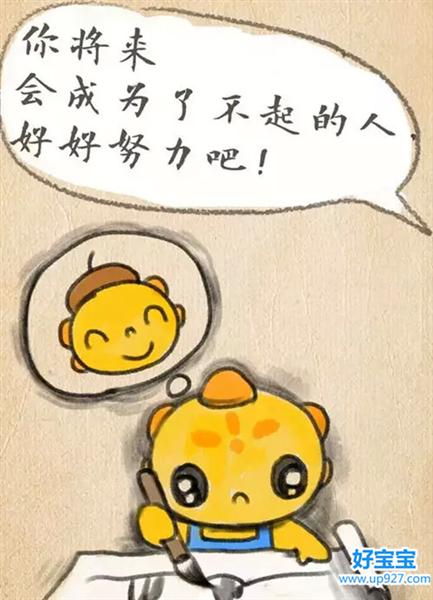 你将来
会成为了不起的人
好好努力吧!
好宝宝
www.up927.com